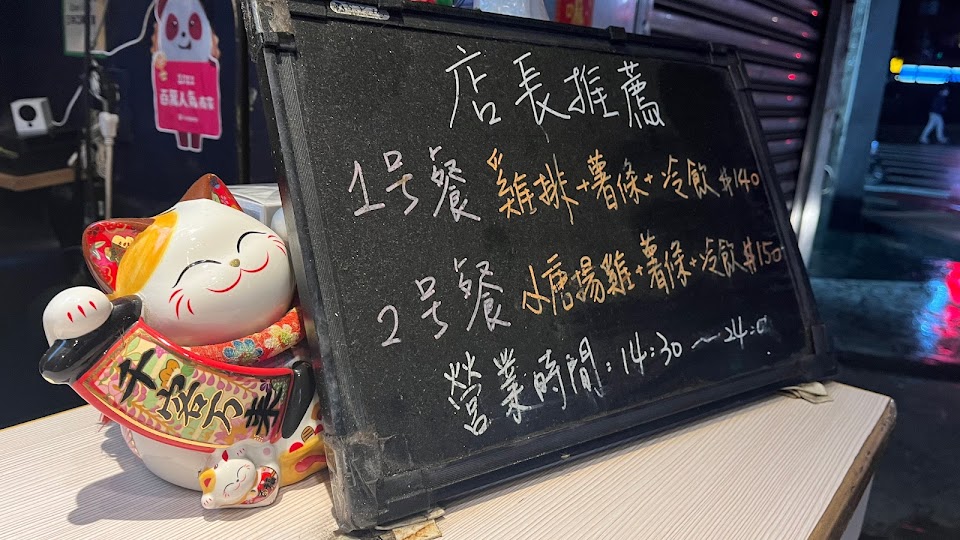 店長推薦
1号餐 雞排+薯條+冷飲 $140
2号餐 小唐場雞+薯條+冷飲 $150
營業時間:14:30~24:0
千客万来
百萬人氣商家